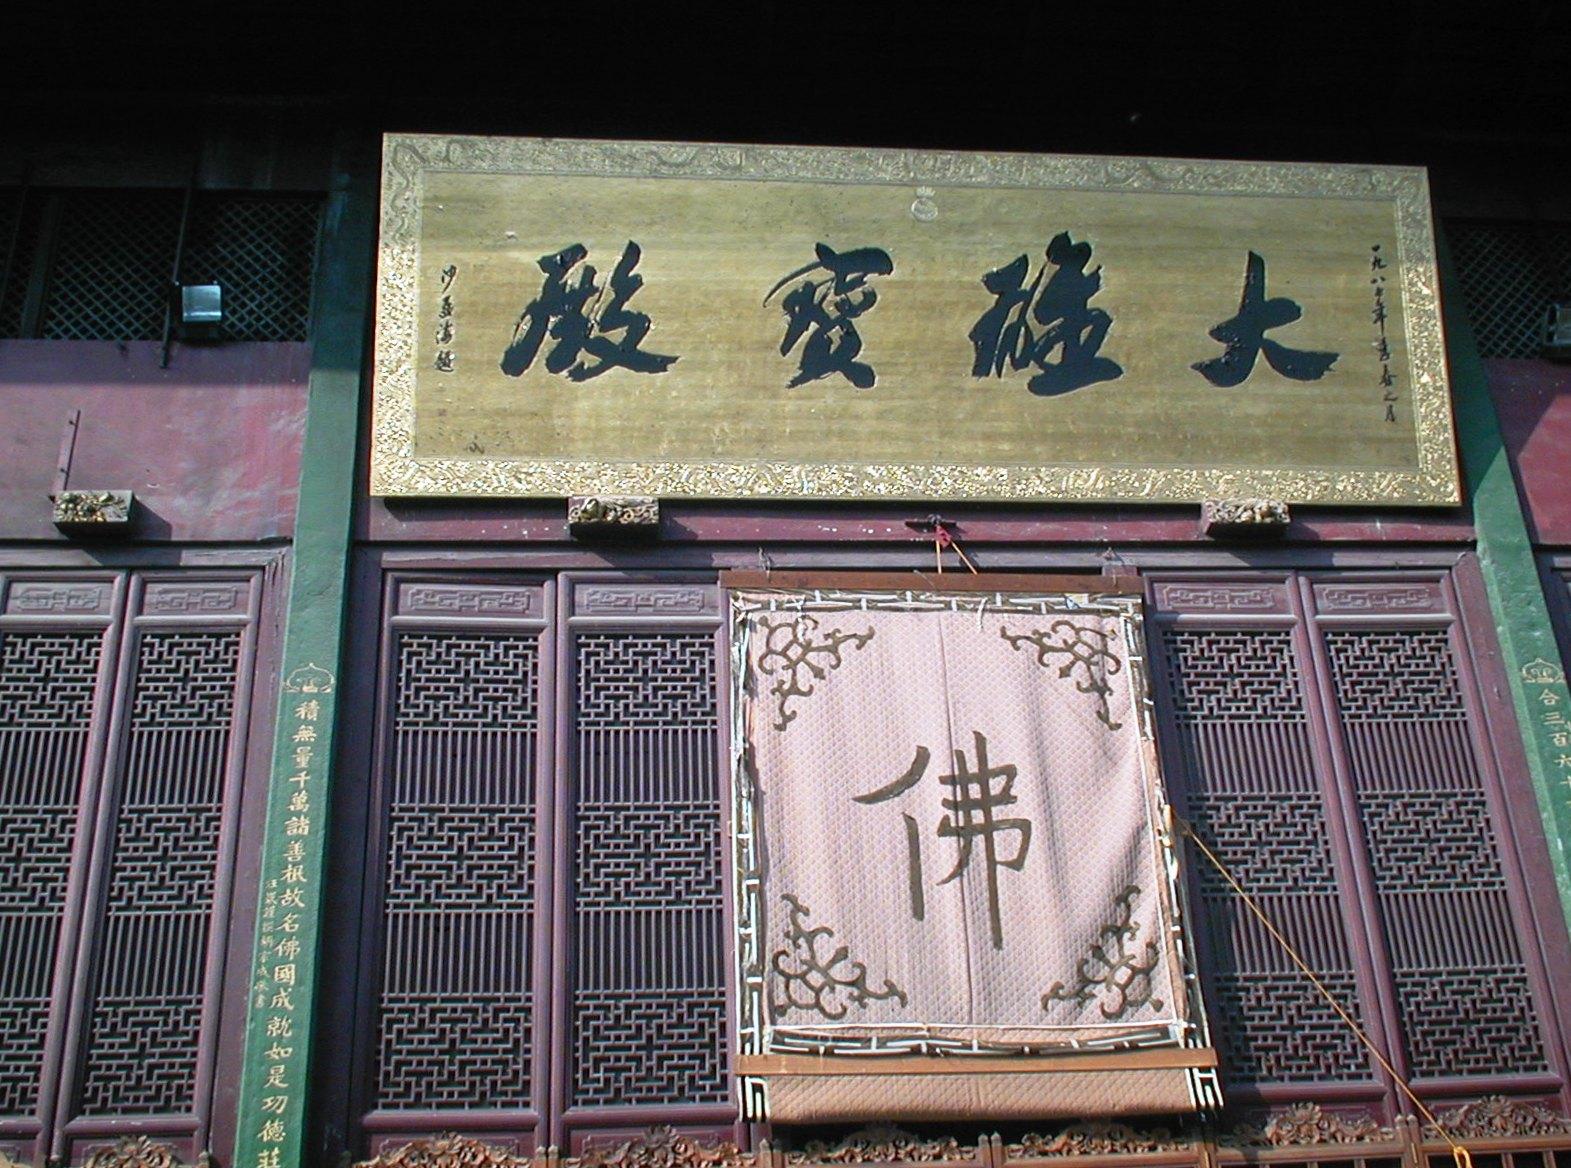 大雄寶殿
一九八七年青春之月
沙孟海題
佛
合三百六十
積無量千萬諸善根故名佛國成就如是功德莊